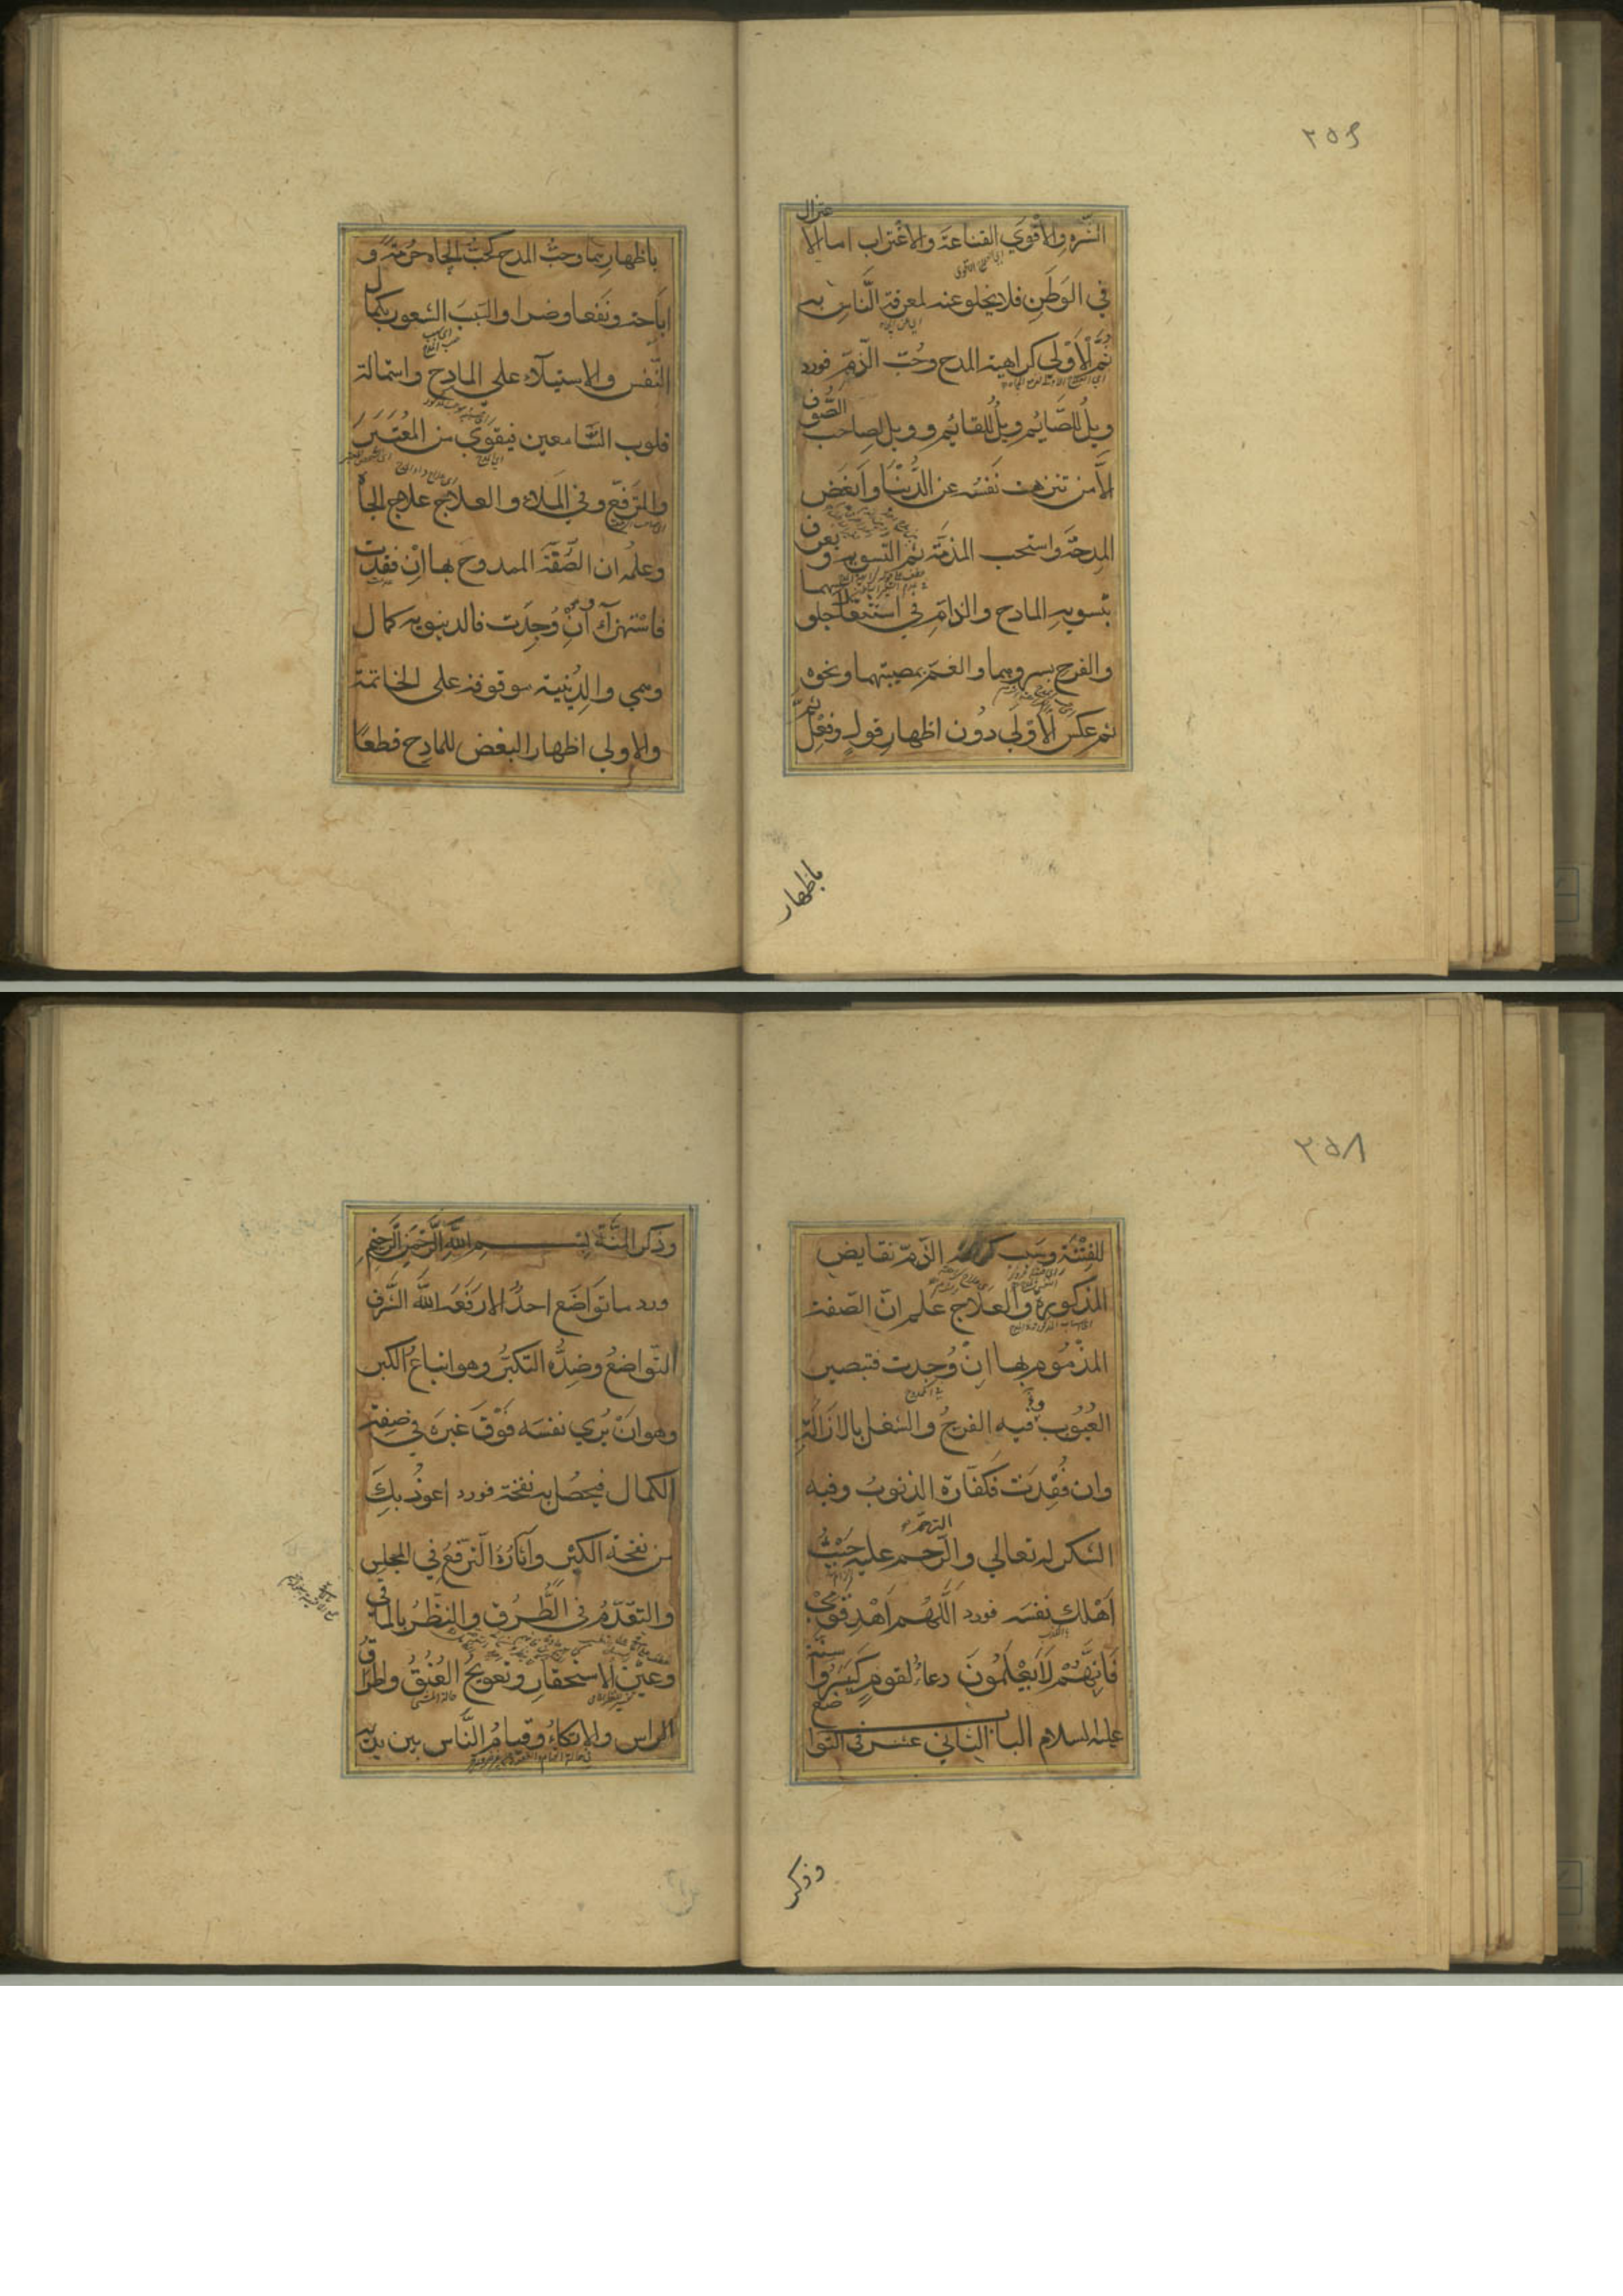 ٢٥٤
الشره والأقوى القناعة والاغتراب اما الاعتزال
في الوطن فلا يخلو عنه لمعرفة الناس به
ثم الأولى كراهية المدح وحب الذم فورد
ويل للصائم ويل للقائم وويل لصاحب الصوف
الا من تنزهت نفسه عن الدنيا وابغض
المدحة واستحب المذمة ثم التسوية و يعرف
بتسوية المادح والذام في استثقال جلوسهما
والفرح بسرورهما والغم بمصيبتهما ونحوه
ثم عكس الأولى دون اظهار قول وفعل ثم
باظهار
باظهارهما وحب المدح كحب الجاه حرمة و
اباحة ونفعا وضرا والسبب الشعور بكمال
النفس والاستيلاء على المادح واستمالة
قلوب السامعين فيقوى من المعتبر
والمترفع وفي الملاء والعلاج علاج الجاه
وعلم ان الصفة الممدوح بها ان فقدت
فاستهزاء ان وجدت فالدنيوية كمال
وهمي والدينية موقوفة على الخاتمة
والاولى اظهار البغض للمادح قطعا
٢٥٨
للفتنة وسبب كراهة الذم نقايض
المذكورة والعلاج علم ان الصفة
المذموم بها ان وجدت فتبصير
العيوب وفيه الفرح والشغل بالازالة
وان فقدت فكفارة الذنوب وفيه
الشكر له تعالى والترحم عليه حيث
اهلك نفسه فورد اللهم اهد قومي
فانهم لا يعلمون دعاء لقوم كسروا سنه
عليه السلام الباب الثاني عشر في التواضع
وذكر
وذكر المنة بسم الله الرحمن الرحيم
ورد ما تواضع احد الا رفعه الله الشرف
التواضع وضده التكبر وهو اتباع الكبر
وهو ان يرى نفسه فوق غيره في صفة
الكمال فيحصل به نفخة فورد اعوذ بك
من نفخة الكبر وآثاره الترفع في المجلس
والتقدم في الطرق والنظر بالماقي
وعين الاستحقار وتعويج العنق واطراق
الراس والاتكاء وقيام الناس بين يديه